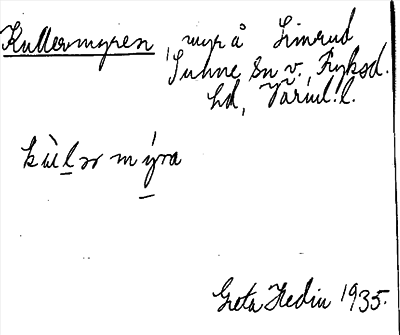 Kullermyren, myr å Limrud
Sunne sn v., Fryksd.
hd, Värml. l.
kùlər mýra
Greta Hedin 1935.